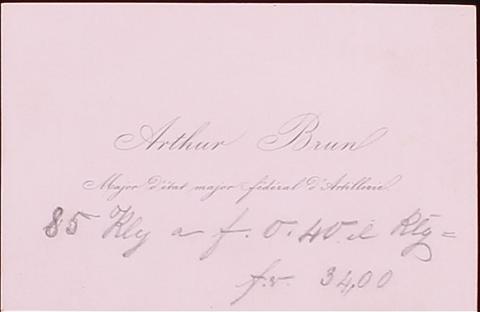 Arthur Brun
Major d'état major fédéral d'Artillerie
85 Klg a f. 0.40 il Klg =
fr. 34,00